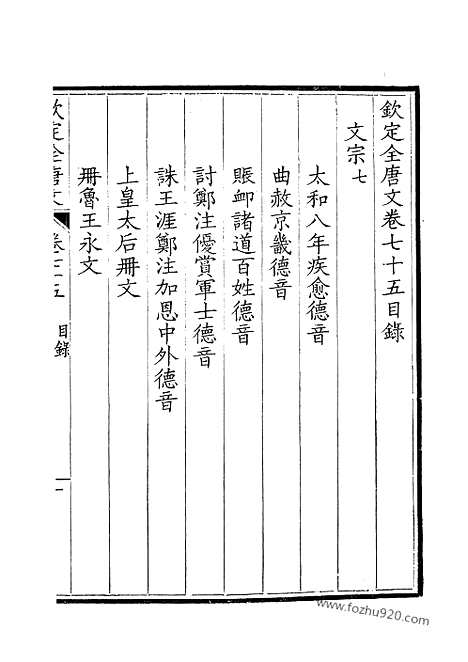 欽定全唐文卷七十五目錄
文宗七
太和八年疾愈德音
曲赦京畿德音
賬卹諸道百姓德音
討鄭注優賞軍士德音
誅王涯鄭注加恩中外德音
上皇太后冊文
冊魯王永文
欽定全唐文 卷七十五 目錄 一
www.fozhu920.com